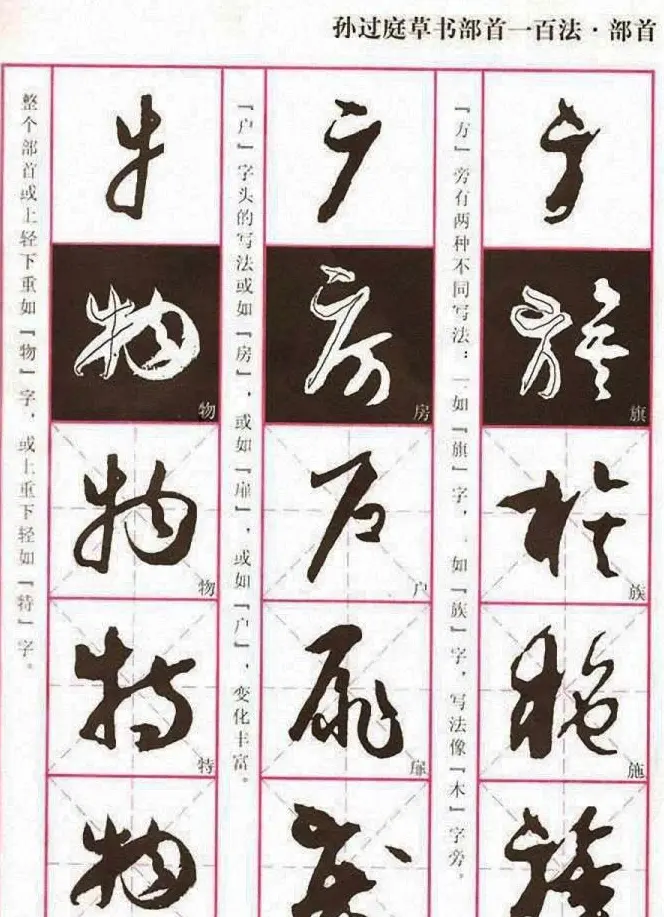 孙过庭草书部首一百法·部首
『方』旁有两种不同写法：一如『旗』字，一如『族』字，写法像『木』字旁。
旗
族
施
『户』字头的写法或如『房』，或如『扉』，或如『户』，变化丰富。
房
户
扉
整个部首或上轻下重如『物』字，或上重下轻如『特』字。
物
物
特